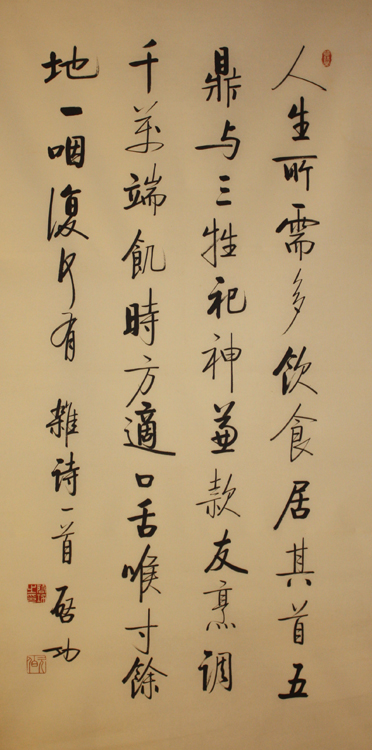 人生所需多飲食居其首五
鼎与三牲祀神兼款友烹調
千萬端飢時方適口舌喉寸餘
地一咽復何有 雜诗一首 啓功